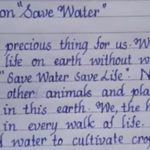 on "Save Water"
precious thing for us. W
life on earth without w
"Save Water Save Life". N
other animals and pla
in this earth. We, the h
in every walk of life.
d water to cultivate crop